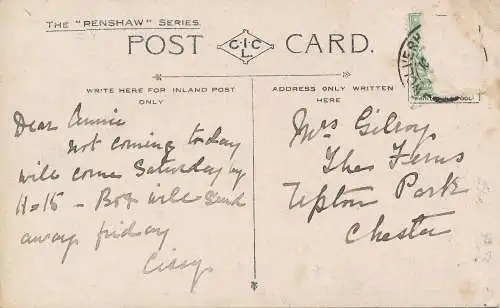 THE "RENSHAW" SERIES.
POST CARD.
C.I.C
L.
WRITE HERE FOR INLAND POST
ONLY
ADDRESS ONLY WRITTEN
HERE
Dear Annie
not coming today
will come Saturday by
11-15 - Box will send
away friday
Cissy
Mrs Gilroy
The Ferns
Upton Park
Chester